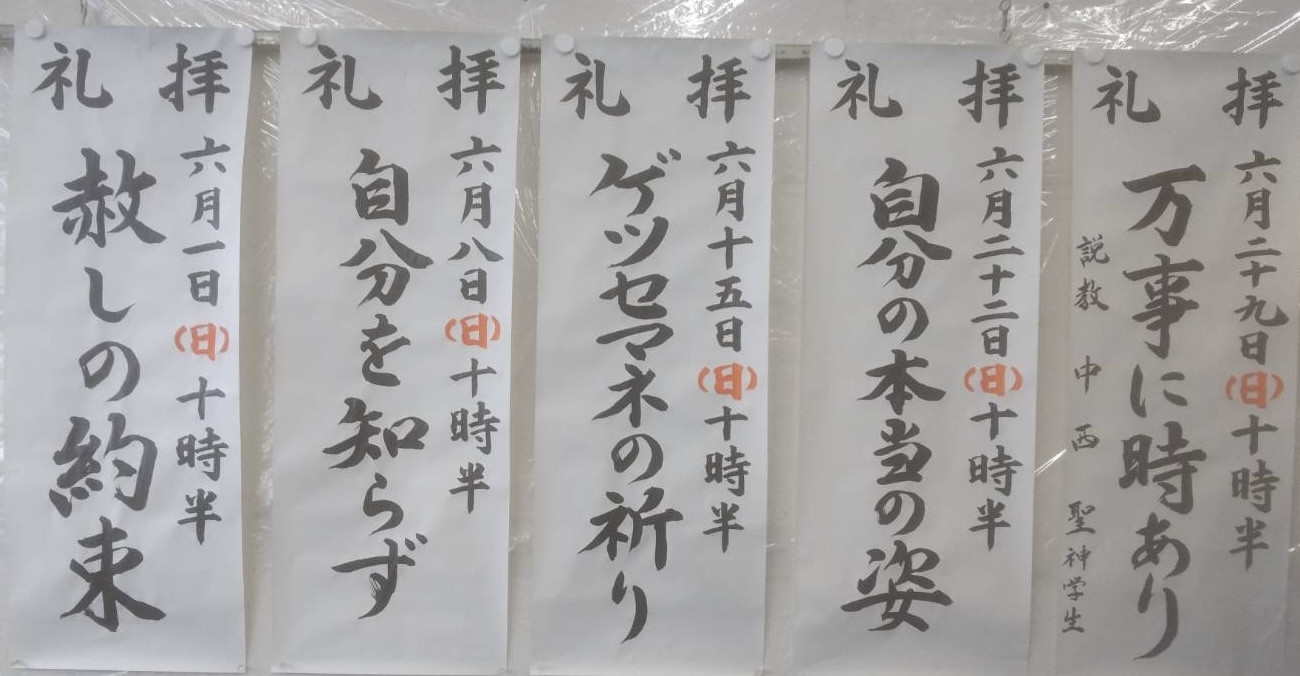 礼拝
六月一日(日)十時半
赦しの約束
礼拝
六月八日(日)十時半
自分を知らず
礼拝
六月十五日(日)十時半
ゲツセマネの祈り
礼拝
六月二十二日(日)十時半
自分の本当の姿
礼拝
六月二十九日(日)十時半
万事に時あり
説教 中西 聖神学生